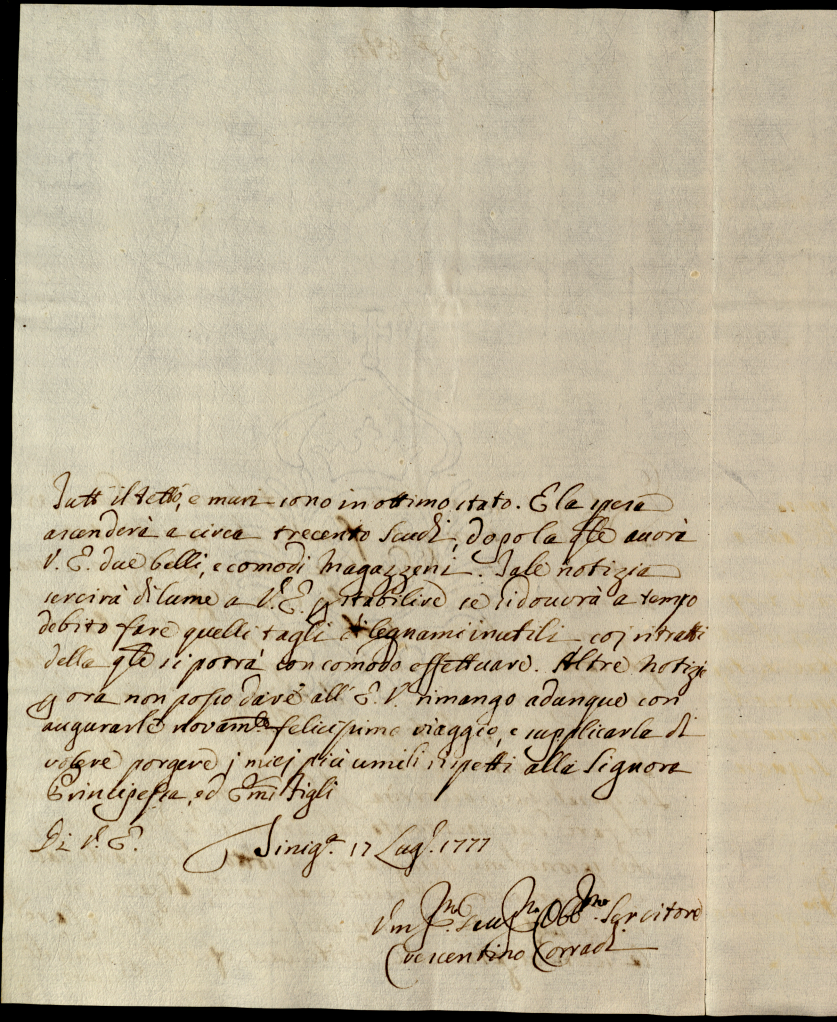 Tutt' il tetto, e muri sono in ottimo stato. E la spesa
ascenderà a circa trecento Scudi, dopo la qle avrà
V. E. due belli, e comodi Magazzeni. Tale notizia
servirà di lume a V. E. p stabilire se si dovrà a tempo
debito fare quelli tagli di legnami inutili coj ritratti
della qle si potrà con comodo effettuare. Altre notizie
p ora non posso dare all' E. V. rimango adunque con
augurarle novamte felicissimo viaggio, e supplicarla di
volere porgere j miej più umili rispetti alla Signora
Principessa, ed Emi Figli
Di V. E. Sinigª 17 Lugº. 1777
Umo Devmo Obbmo Servitore
Crescentino Corradi